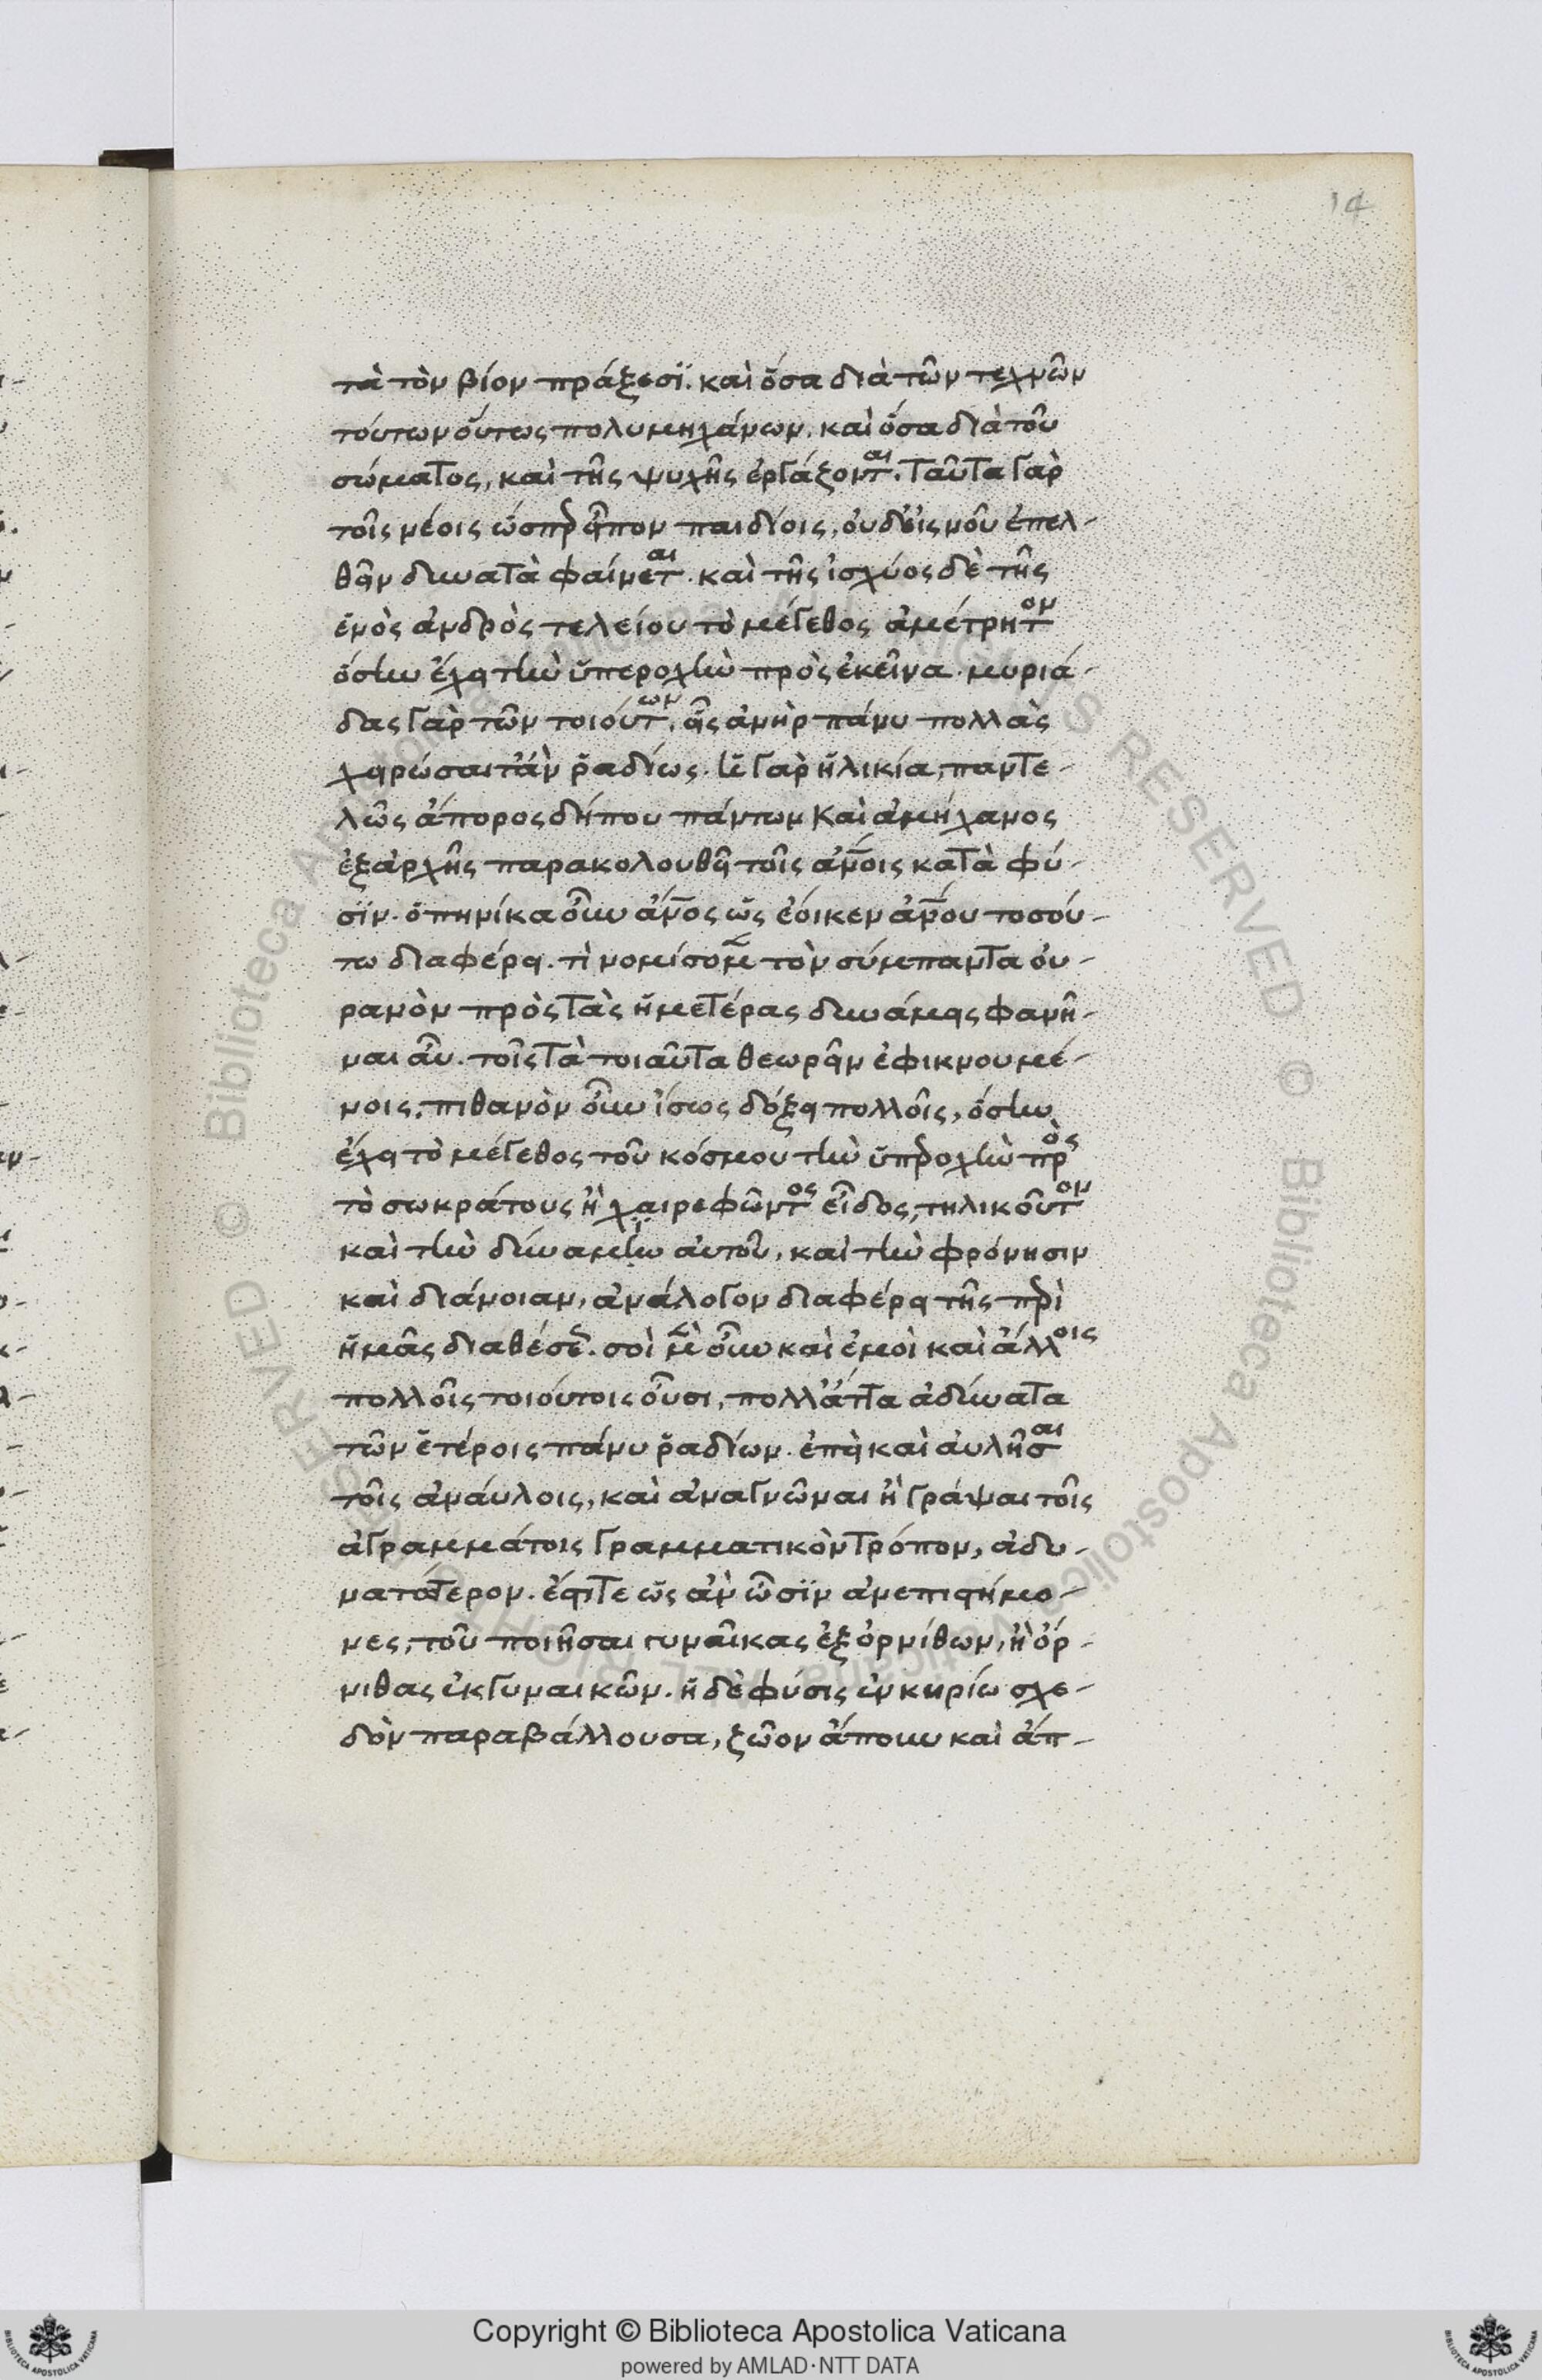 14
τὰ τὸν βίον πράξεσϊ. καὶ ὅσα διὰ τῶν τεχνῶν
τούτων οὕτως πολυμηχάνων. καὶ ὅσα διὰ τοῦ
σώματος, καὶ τῆς ψυχῆς ἐργάζονται. ταῦτα γὰρ
τοῖς νέοις ὥσπερ εἶπον παιδίοις, οὐδ' εἰς νοῦν ἐπελ-
θεῖν δυνατὰ φαίνεται. καὶ τῆς ἰσχύος δὲ τῆς
ἑνὸς ἀνδρὸς τελείου τὸ μέγεθος ἀμέτρητον
ὅσην ἔχει τὴν ὑπεροχὴν πρὸς ἐκεῖνα. μυριά-
δας γὰρ τῶν τοιούτων, εἷς ἀνὴρ πάνυ πολλὰς
χειρώσαιτ' ἂν ῥαδίως. ἡ γὰρ ἡλικία, παντε-
λῶς ἄπορος δήπου πάντων καὶ ἀμήχανος
ἐξαρχῆς παρακολουθεῖ τοῖς ἀν̅οις κατὰ φύ-
σϊν. ὁπηνίκα οὖν ἀν̅ος ὡς ἔοικεν ἀν̅ου τοσού-
τω διαφέρει. τὶ νομίσομεν τὸν σύμπαντα οὐ-
ρανὸν πρὸς τὰς ἡμετέρας δυνάμεις φανῆ-
ναι ἂν. τοῖς τὰ τοιαῦτα θεωρεῖν ἐφικνουμέ-
νοις, πιθανὸν οὖν ἴσως δόξει πολλοῖς, ὅσην
ἔχει τὸ μέγεθος τοῦ κόσμου τὴν ὑπεροχὴν πρὸς
τὸ σωκράτους ἢ χαιρεφῶντος εἶδος, τηλικοῦτον
καὶ τὴν δύναμϊν αὐτοῦ, καὶ τὴν φρόνησιν
καὶ διάνοιαν, ἀνάλογον διαφέρει τῆς περὶ
ἡμᾶς διαθέσεως. σοὶ μὲν οὖν καὶ ἐμοὶ καὶ ἄλλοις
πολλοῖς τοιούτοις οὖσι, πολλ' ἄττα ἀδύνατα
τῶν ἑτέροις πάνυ ῥαδίων. ἐπεὶ καὶ αὐλῆσαι
τοῖς ἀναύλοις, καὶ ἀναγνῶναι ἢ γράψαι τοῖς
ἀγραμμάτοις γραμματικὸν τρόπον, ἀδυ-
νατότερον. ἔστιτε ὡς ἀν ὦσϊν ἀνεπιστήμο-
νες, τοῦ ποιῆσαι γυναῖκας ἐξ ὀρνίθων, ἢ ὄρ-
νιθας ἐκ γυναικῶν. ἡ δὲ φύσις ἐν κηρίω σχε-
δὸν παραβάλλουσα, ζῶον ἄπουν καὶ ἄπ-
Copyright © Biblioteca Apostolica Vaticana
powered by AMLAD·NTT DATA